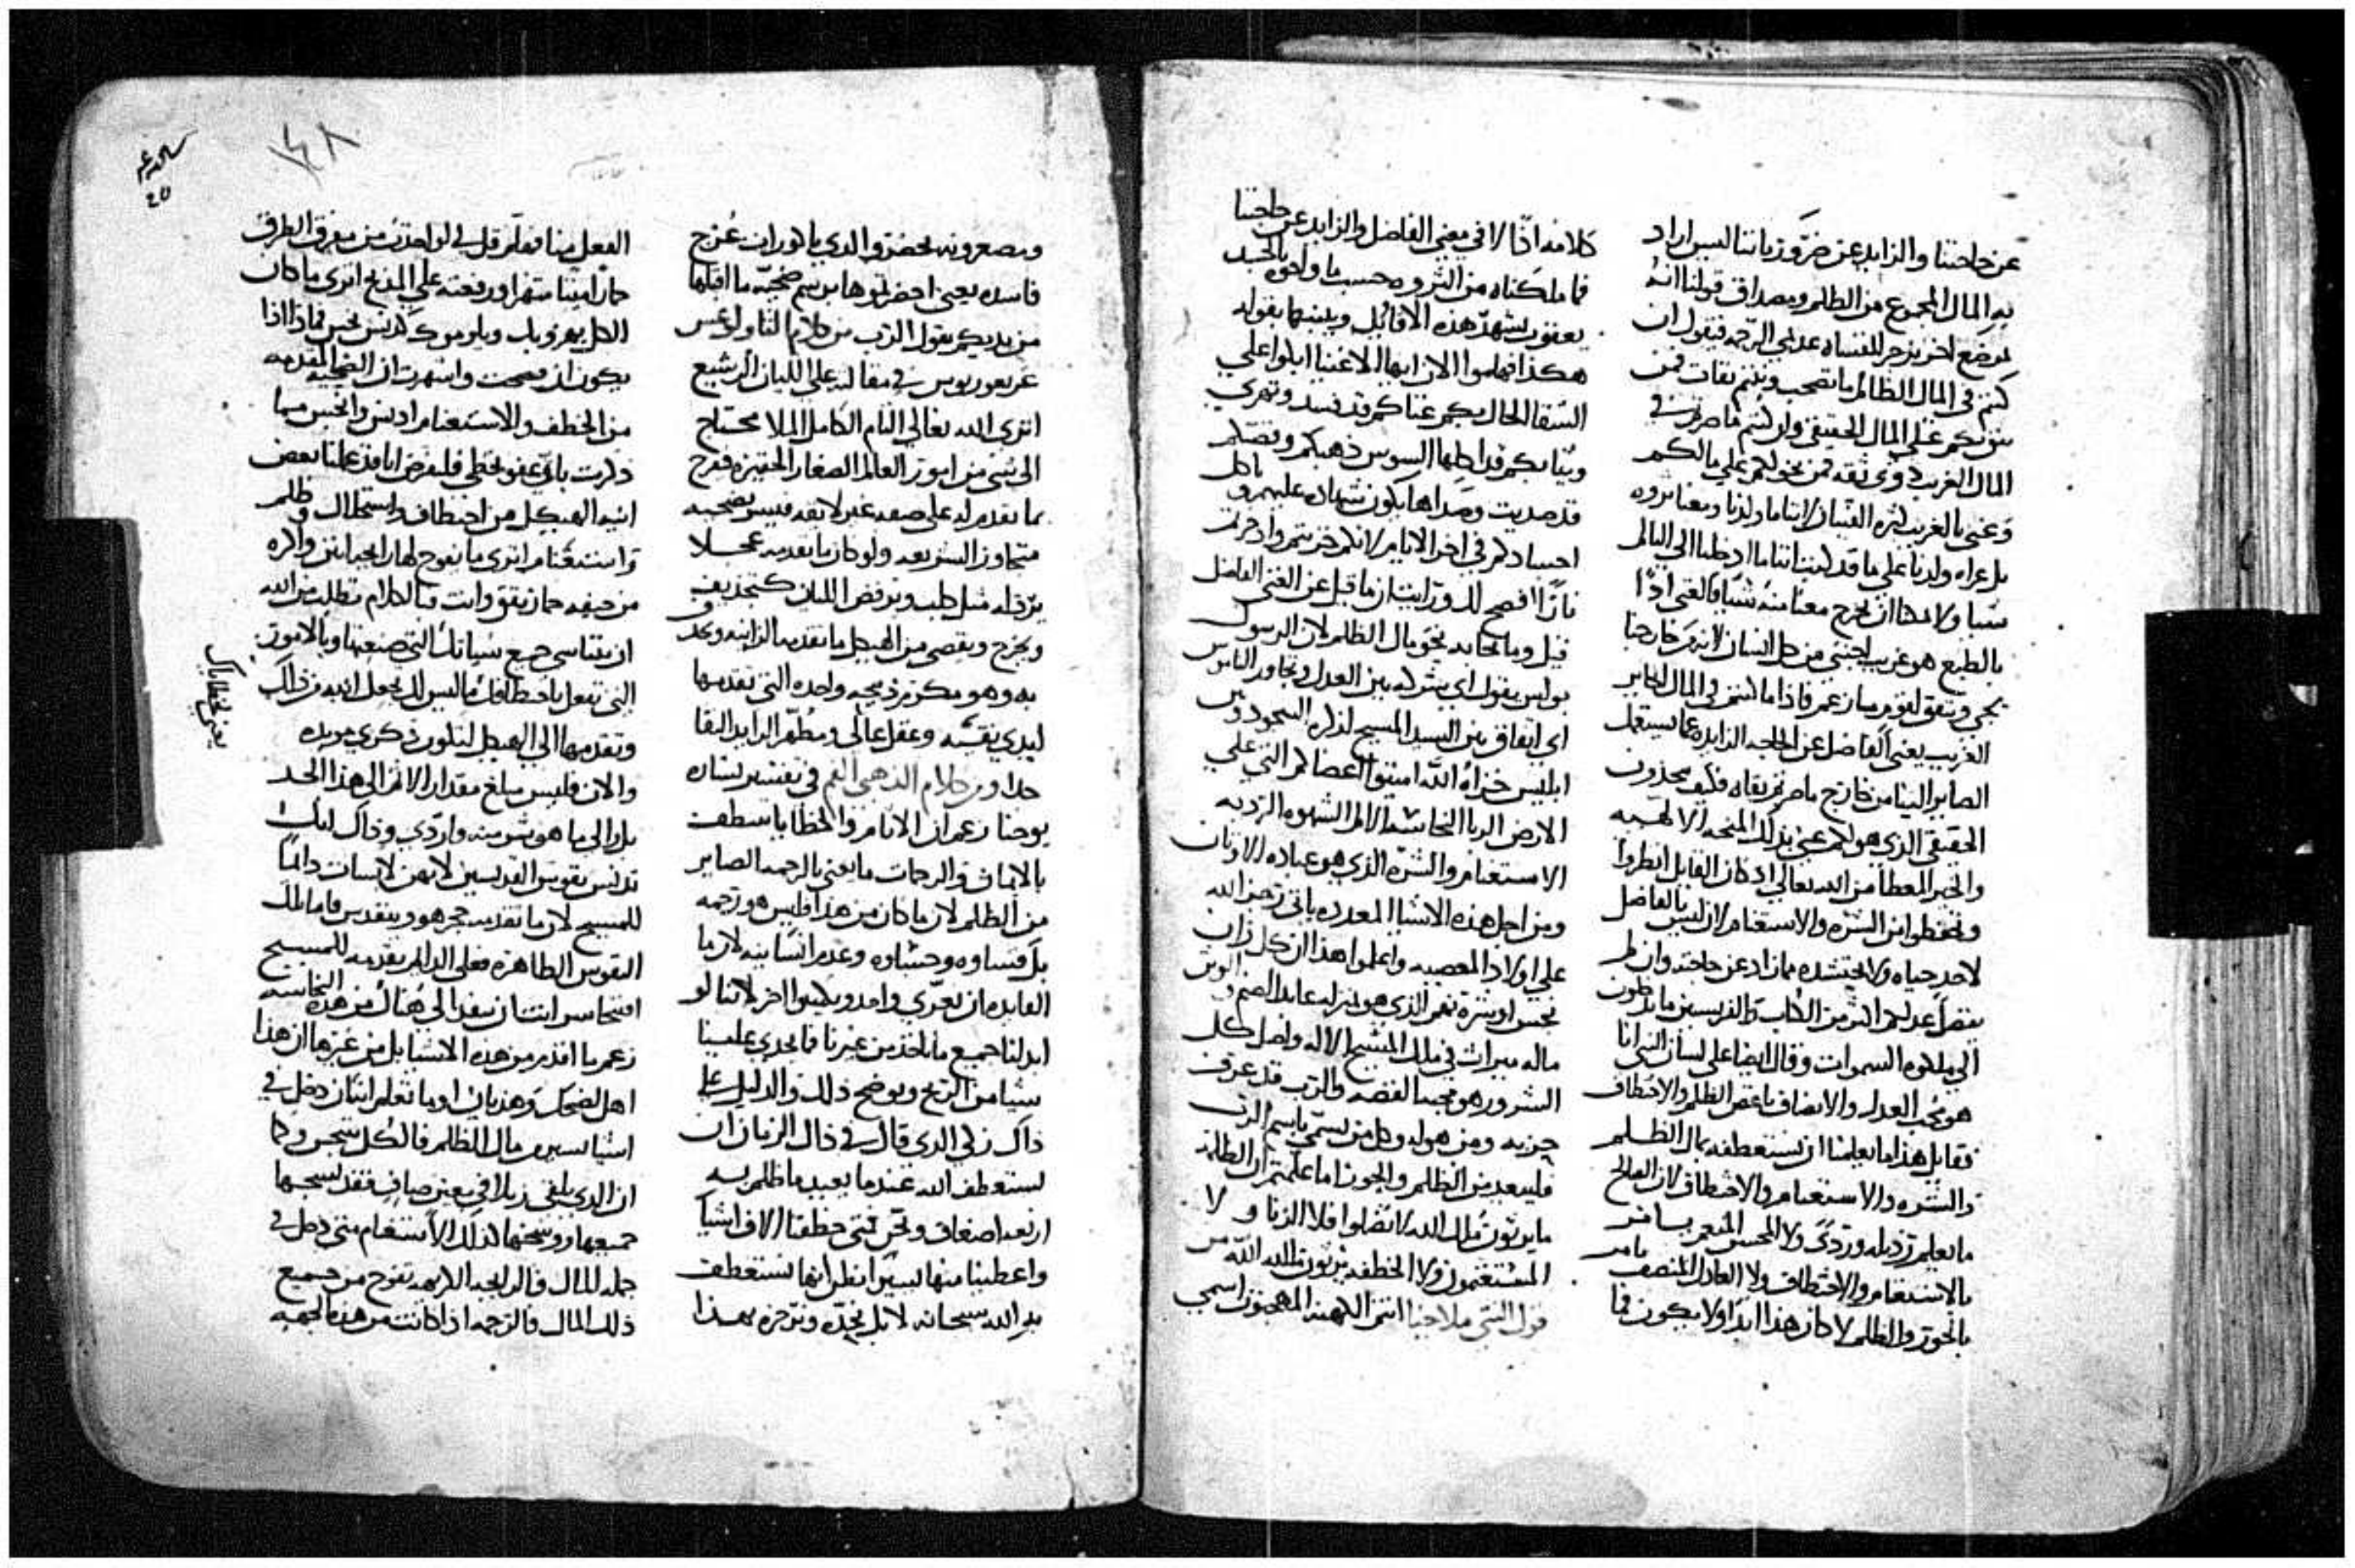 عن حاجتنا والزايد عن ضرورياتنا ليس اراد
به المال المجموع من الظلم ومصداق قولنا انه
لموضع اخر يزجر للقساه عديمي الرحمه فيقول ان
كنتم في المال الظالم ما تصحب وتنتم ثقات فمن
يثق بكم على المال الحقيقي وان كنتم ما صرتم في
المال الغريب ذوي ثقه فمن يخولكم على مالكم
وعنى بالغريب كثره القنيان لاننا ما ولدنا ومعنا ثروه
بل عراه ولدنا على ما قد كتب اننا ما ادخلنا الى العالم
شيا ولا يمكنا ان نخرج معنا منه شيا فالغنى اذًا
بالطبع هو غريب اجنبي من كل انسان لانه من خارجنا
يجي فاذا ما كنتم في المال الغاير
الغريب يعني الفاضل عن الحاجه الزايده عما يستعمل
الصاير الينا من خارج ما صرتم ثقاه فكيف تجذبون
الحقيقي الذي هو لكم عنى بذلك المنحه الالهيه
والخير المعطا من الله تعالى اذ كان القايل انظروا
وتحفظوا من الشره والاستغنام لان ليس بالفاضل
لاحد حياه ولا يحتشده مما زاد عن حاجته وان لم
يفضل عدلكم اكثر من الكتاب والفريسين ما تدخلون
الى ملكوه السموات وقال ايضا على لسان النبي انا
هو محب العدل والانصاف باغض الظلم والاختطاف
فقايل هذا ما يعلمنا ان نستعطفه بمال الظلم
والشره والاستغنام والاختطاف لان الصالح
ما يعلم رذيله وردىً ولا المحسن المنعم يامر
بالاستغنام والاختطاف ولا العادل المنصف يامر
بالجور والظلم لا كان هذا ابدًا ولا يكون فما
كلامه اذًا الا في معنى الفاضل والزايد عن حاجتنا
فما ملكناه من الثروه حسب ما واخوه بالجسد
يعقوب يشهد هذه الاقاويل ويثبتها بقوله
هكذا فهلموا الان ايها الاغنيا ابكوا على
الشقا الحال بكم غناكم قد فسد وتهرى
وثيابكم قد اكلها السوس ذهبكم وفضتكم
قد صديت وصداها يكون شهاده عليهم وياكل
اجسادكم في اخر الايام لانكم خزنتم وادخرتم
نارًا افصح لك ورايت ان ما قيل عن الغنى الفاضل
قيل وما نحا به نحو مال الظلم لان الرسول
بولس يقول اي شركه بين العدل وتجاوز الناموس
اي اتفاق بين السيد المسيح لذكره السجود وبين
ابليس خزاه الله اميتوا اعضاكم التي على
الارض الزنا النجاسه الالم الشهوه الرديه
الاستغنام والشره الذي هو عباده الاوثان
ومن اجل هذه الاشيا المعدده ياتي رجز الله
على اولاد المعصيه واعلموا هذا ان كل زان
نجس او شره نهم الذي هو بمنزله عابد الصنم والوثن
ماله ميراث في ملك المسيح الاله واصل كل
الشرور هو محبه الفضه والرب قد عرف
حزبه ومن هو له وكل من يسمي باسم الرب
فليبعد من الظلم والجور اما علمتم ان الظلمه
ما يرثون ملك الله لا تضلوا فلا الزناه ولا
المستغنمون ولا الخطفه يرثون ملك الله من
قول النبي ملاخيا انتم الكهنه المهجنون اسمي
وتصغرونه تحضروا الذي ماكوران عُرج
فاسده يعني احضرتموها برسم ضحيّه ما اقبلها
من يديكم يقول الرب من كلام الثاولوغس
غريغوريوس في مقالته على اللبان الرشيع
اترى الله تعالى التام الكامل الملا محتاج
الى شى من امور العالم الصغار الحقيره ففرح
بما تقدم له على صفه غير لايقه فيسر بضحيه
متجاوز الشريعه ولو كان ما تقدمه عجلا
يرذله مثل كلب ويرفض اللبان كتجذيف
ويخرج ويقصي من الهيكل ما تقدمه الزانيه ويجد
به وهو مكرم ذبيحه واحده التي تقدمها
ايدي نقيّه وعقل عالى ومطهّر الزايد النقا
جدًا ومن كلام الذهبي الفم في تفسير بشاره
يوحنا زعم ان الاثام والخطايا تنظف
بالامانه والرحمات ما يعني بالرحمه الصاير
من الظلم لان ما كان من هذا فليس هو رحمه
بل قساوه وحشاوه وعدم انسانيه لان ما
الفايده ان نعرّي واحد ويكسوا اخر لاننا لو
ابدلنا جميع ما ناخذ من غيرنا فما يجدي علينا
شيا من الربح ويوضح ذلك والدليل على
ذاك زكي الذي قال في ذاك الزمان ان
يستعطف الله عندما يعيد ما ظلم به
اربعه اضعاف ونحن متى خطفنا الاف اشيا
واعطينا منها يسيرًا نظن انها نستعطف
به الله سبحانه لا بل نحدّه ونزجره بهذا
الفعل منا
حمارًا ميتًا متهرا ورفعته على المذبح اترى ما كان
الكل يهزو بك ويلوموك كدنس نجس فماذا اذا
يكون ان فصحت واشهرت ان الضحايا المقدمه
من الخطف والاستغنام ادنس وانجس مما
ذكرت باى عفو تحظى فلنفرض انا قد عملنا بعض
انيه الهيكل من اختطاف واستحلال وظلم
واستغنام اترى ما يفوح لها رايحه انتن واكره
من جيفه حمار نقق وانت بالكلام تطلب من الله
ان يتناسى جميع سياتك التي صنعتها وبالامور
التي تفعل باختطافك ما ليس لك تجعل الله من ذاك
وتقدمها الى الهيكل لتكون ذكرى مويده
والان فليس مبلغ مقدار الاثم الى هذا الحد
بل والى ما هو شر منه واردّى وذاك انك
تدنس نفوس القديسين لانهن لابسات دايمًا
للمسيح لان ما تقدمه حجر هو ويتقدس فاما تلك
النفوس الطاهره فعلى الدايم يقدمه للمسيح
افتجاسر انت ان ينفذ الى هناك من هذه النجاسه
زعم ما اقدم من هذه الاشيا بل من غيرها ان هذا
اهل لضحك وهذيان اوما تعلم ان كان دخل في
اشيا يسير من مال الظلم فالكل يتنجس وكما
ان الذي يلقي زبلا في معين صافٍ فقد نجسها
جميعها ووسخها كذلك الاستغنام متى دخل في
جمله المال فالرايحه الكريهه تفوح من جميع
ذلك المال فالرحمه اذا كانت من هذه الجهه
يعني خطاياك
١٤٨